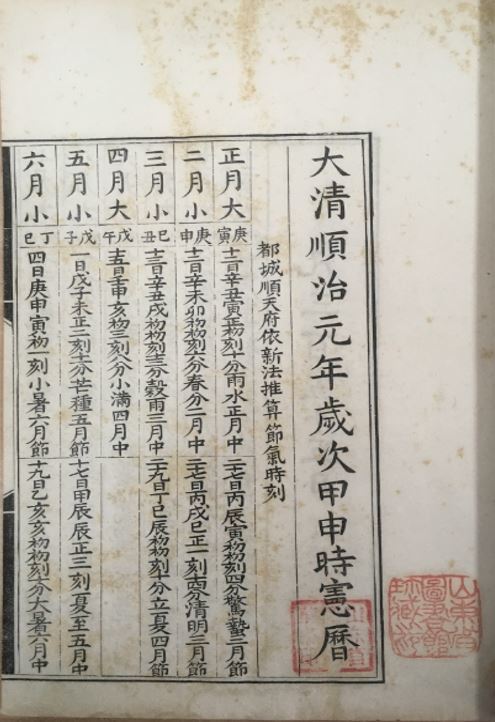 大清順治元年歲次甲申時憲曆
都城順天府依新法推算節氣時刻
正月大 庚寅 十二日辛丑寅正初刻十分雨水正月中 二十七日丙辰寅初初刻四分驚蟄二月節
二月小 庚申 十二日辛未卯初初刻六分春分二月中 二十七日丙戌巳正一刻十四分清明三月節
三月小 己丑 十三日辛丑戌初初刻十三分穀雨三月中 二十九日丁巳辰初初刻十分立夏四月節
四月大 戊午 十五日壬申亥初三刻八分小滿四月中
五月小 戊子 一日戊子未正二刻十分芒種五月節 十七日甲辰辰正三刻夏至五月中
六月小 丁巳 四日庚申寅初一刻小暑六月節 十九日乙亥亥初初刻十分大暑六月中
山東省
圖書館
珍藏印